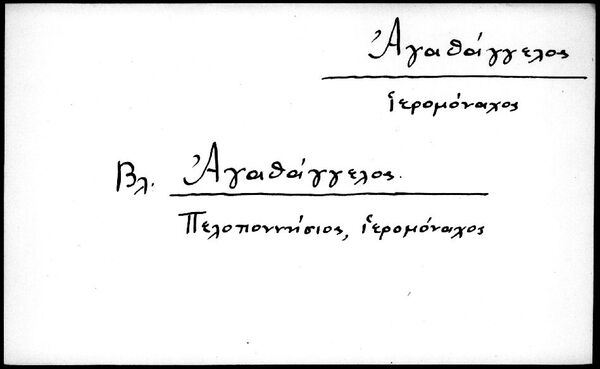 Ἀγαθάγγελος
ἱερομόναχος
Βλ. Ἀγαθάγγελος.
Πελοποννήσιος, ἱερομόναχος